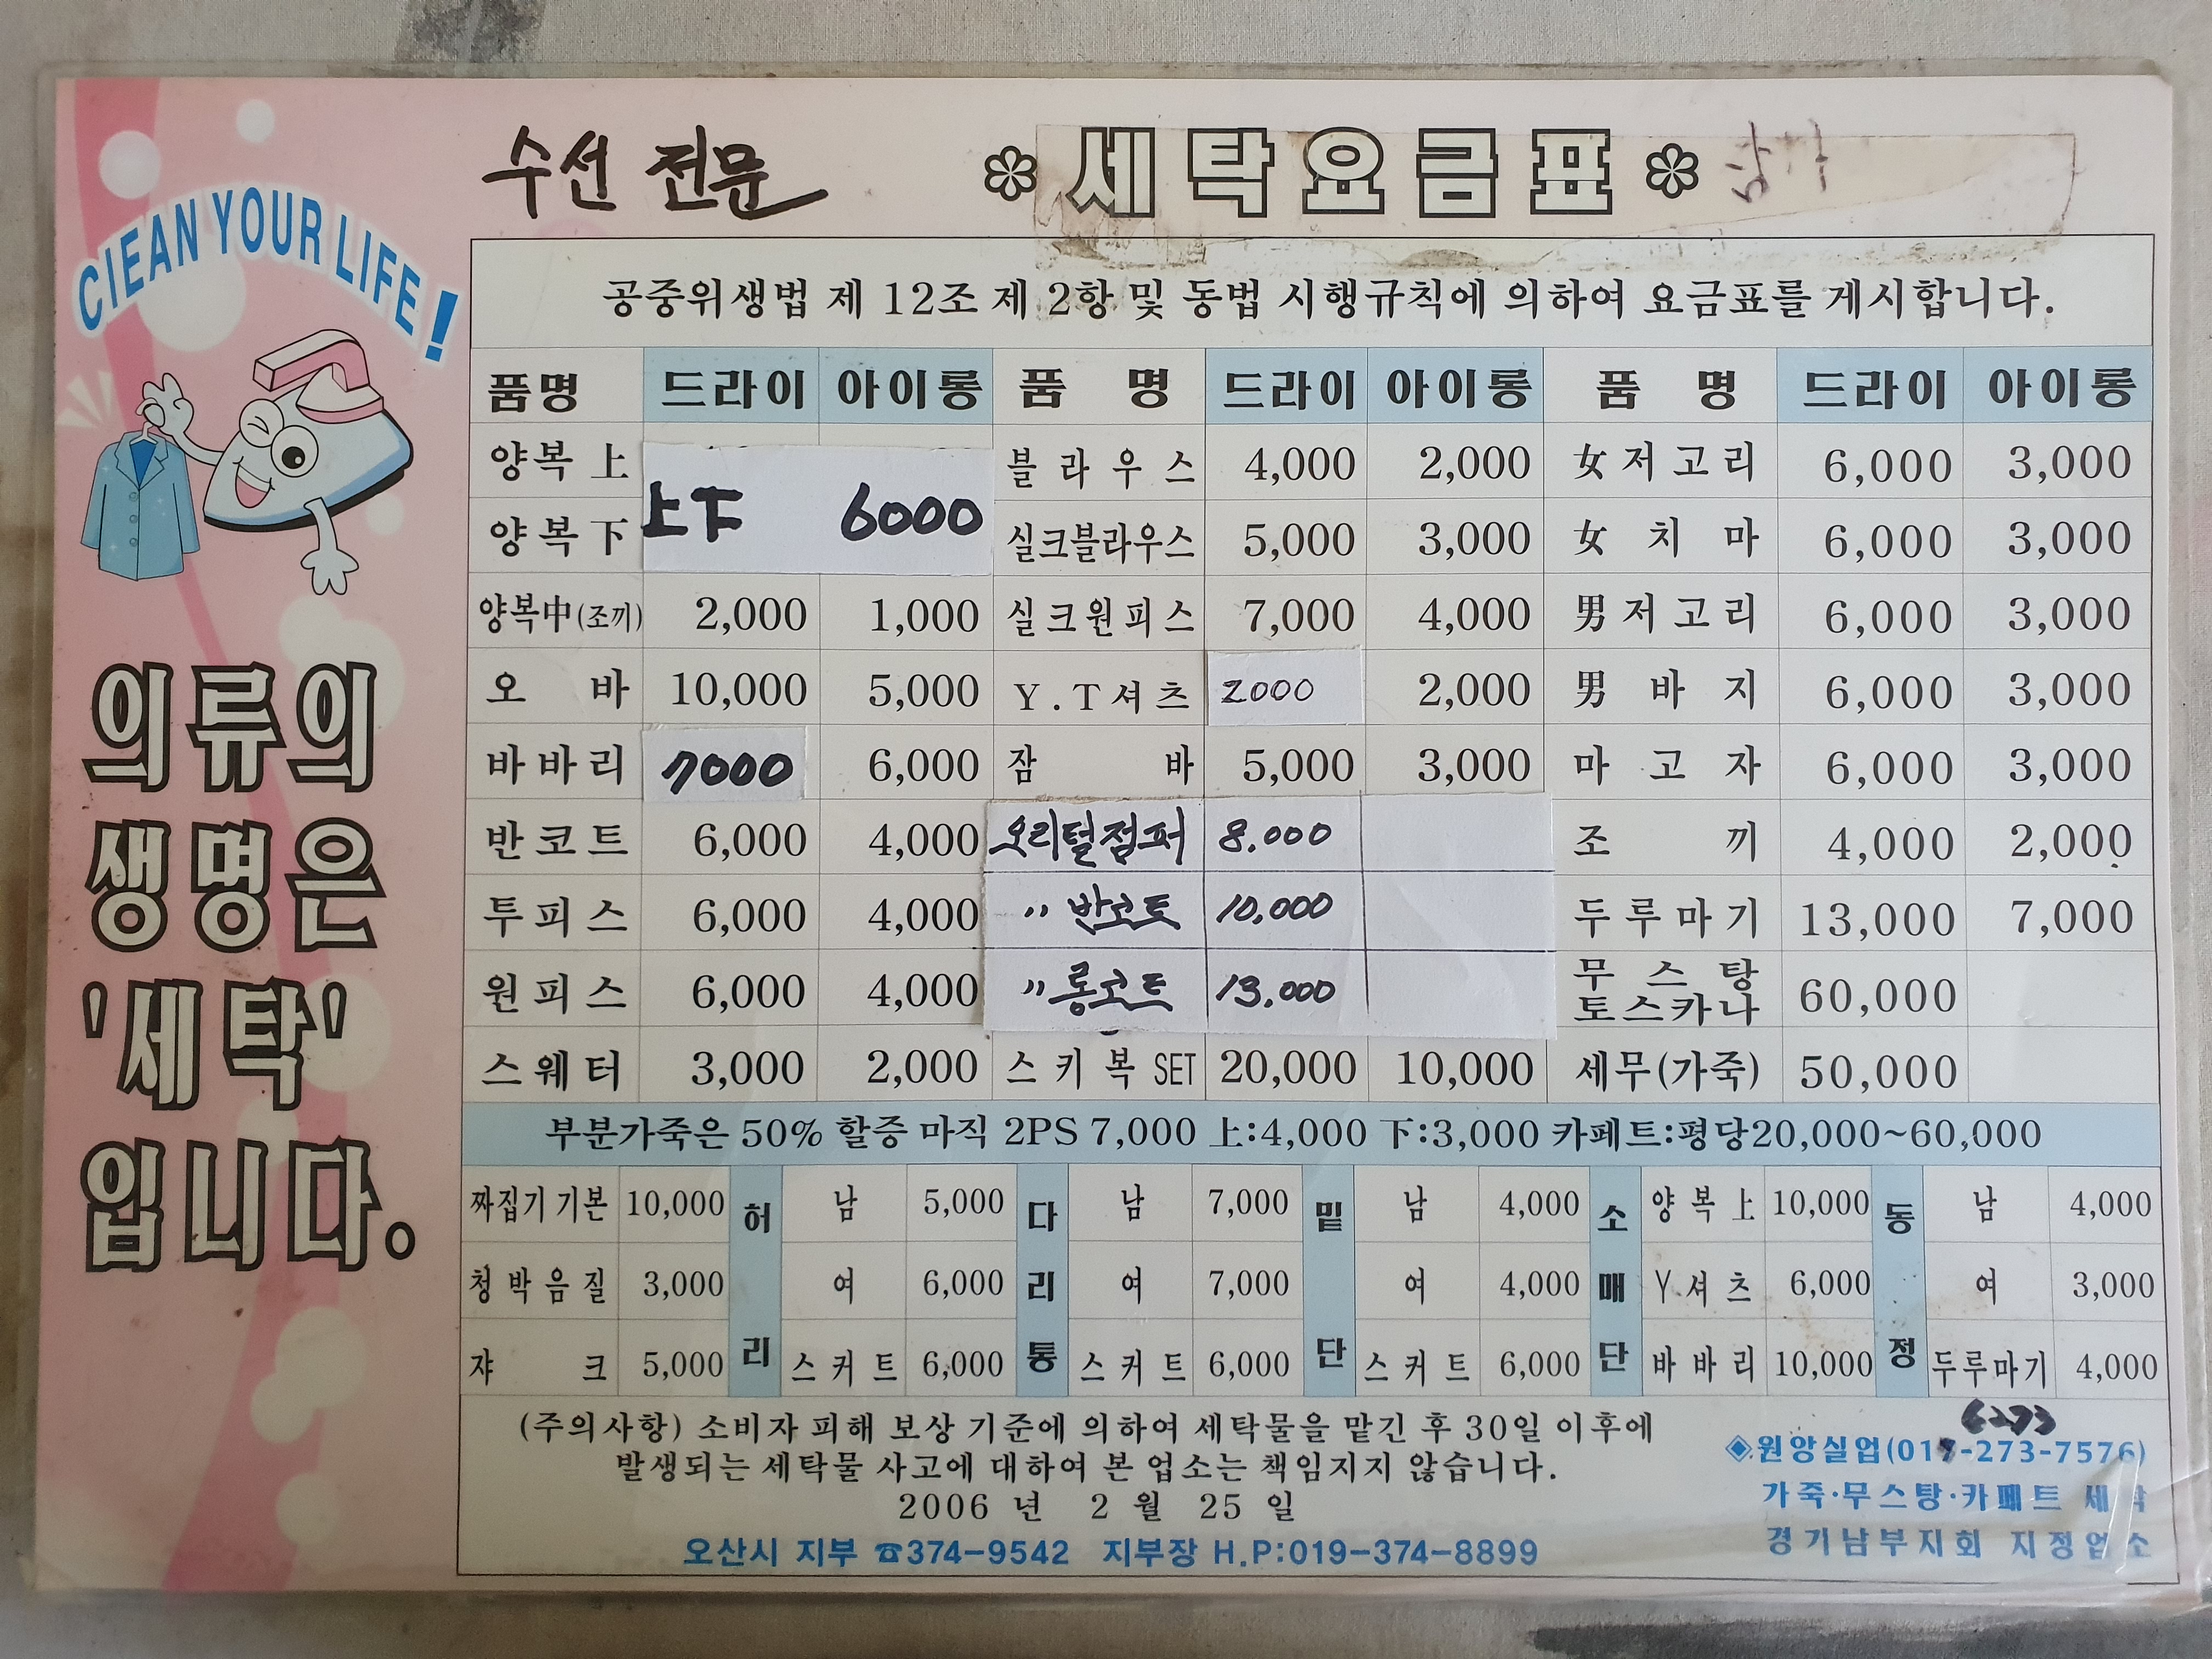 수선 전문
❊ 세탁요금표 ❊
CLEAN YOUR LIFE!
의류의
생명은
'세탁'
입니다.
공중위생법 제 12조 제 2항 및 동법 시행규칙에 의하여 요금표를 게시합니다.
품명 드라이 아이롱 품 명 드라이 아이롱 품 명 드라이 아이롱
양복 上 블라우스 4,000 2,000 女저고리 6,000 3,000
上下 6000
양복 下 실크블라우스 5,000 3,000 女 치 마 6,000 3,000
양복中(조끼) 2,000 1,000 실크원피스 7,000 4,000 男저고리 6,000 3,000
오 바 10,000 5,000 Y.T셔츠 2000 2,000 男 바 지 6,000 3,000
바바리 7000 6,000 잠 바 5,000 3,000 마 고 자 6,000 3,000
반코트 6,000 4,000 오리털점퍼 8.000 조 끼 4,000 2,000
투피스 6,000 4,000 〃 반코트 10,000 두루마기 13,000 7,000
원피스 6,000 4,000 〃 롱코트 13.000 무스탕 토스카나 60,000
스웨터 3,000 2,000 스키복 SET 20,000 10,000 세무(가죽) 50,000
부분가죽은 50% 할증 마직 2PS 7,000 上:4,000 下:3,000 카페트:평당20,000~60,000
짜집기 기본 10,000 허리 남 5,000 다리통 남 7,000 밑단 남 4,000 소매단 양복上 10,000 동정 남 4,000
청박음질 3,000 여 6,000 여 7,000 여 4,000 Y셔츠 6,000 여 3,000
쟈 크 5,000 스커트 6,000 스커트 6,000 스커트 6,000 바바리 10,000 두루마기 4,000
(주의사항) 소비자 피해 보상 기준에 의하여 세탁물을 맡긴 후 30일 이후에
발생되는 세탁물 사고에 대하여 본 업소는 책임지지 않습니다.
2006 년 2 월 25 일
오산시 지부 ☎374-9542 지부장 H.P:019-374-8899
6273
◈원앙실업(017-273-7576)
가죽·무스탕·카페트 세탁
경기남부지회 지정업소